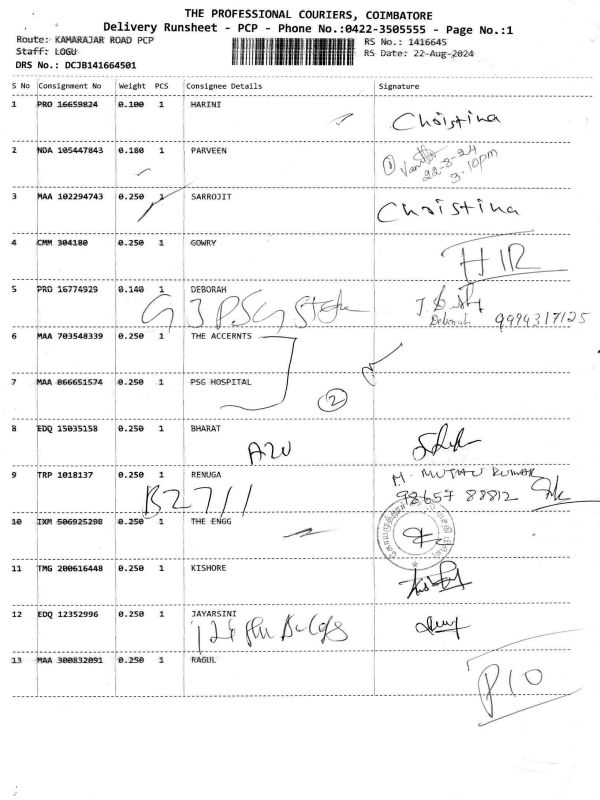 THE PROFESSIONAL COURIERS, COIMBATORE
Delivery Runsheet - PCP - Phone No.:0422-3505555 - Page No.:1
Route: KAMARAJAR ROAD PCP
RS No.: 1416645
Staff: LOGU
RS Date: 22-Aug-2024
DRS No.: DCJB141664501
S No Consignment No Weight PCS Consignee Details Signature
1 PRO 16659824 0.100 1 HARINI Christina
2 NDA 105447843 0.180 1 PARVEEN
22-8-24
3.10pm
3 MAA 102294743 0.250 1 SARROJIT Christina
4 CMM 304180 0.250 1 GOWRY
HIR
5 PRO 16774929 0.140 1 DEBORAH
Deborah 9994317125
G3 PSG
6 MAA 703548339 0.250 1 THE ACCERNTS
7 MAA 866651574 0.250 1 PSG HOSPITAL
2
8 EDQ 15035158 0.250 1 BHARAT
A20
9 TRP 1018137 0.250 1 RENUGA
M. MUTHU KUMAR
98657 88812
B2711
10 IXM 506925298 0.250 1 THE ENGG
11 TMG 200616448 0.250 1 KISHORE
12 EDQ 12352996 0.250 1 JAYARSINI
13 MAA 300832091 0.250 1 RAGUL
P10